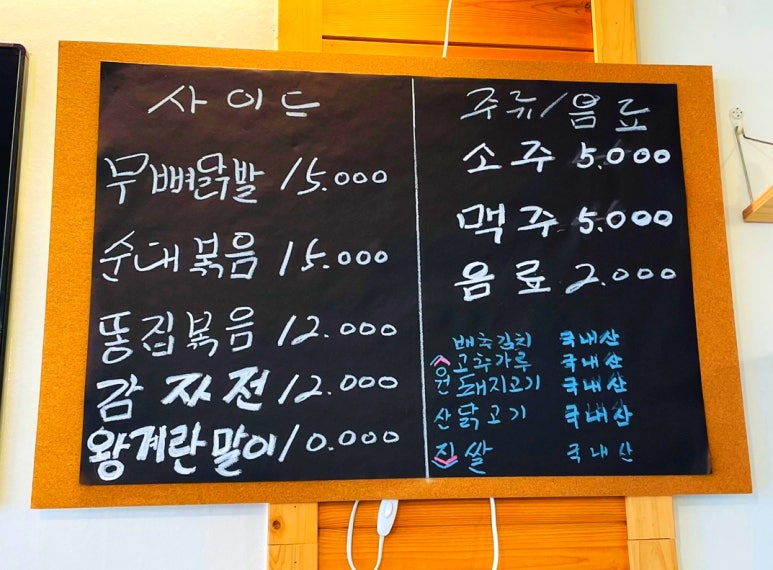 사이드
무뼈닭발 15.000
순대볶음 15.000
똥집볶음 12.000
감자전 12.000
왕계란말이 10.000
주류/음료
소주 5.000
맥주 5.000
음료 2.000
원산지
배추김치 국내산
고추가루 국내산
돼지고기 국내산
닭고기 국내산
쌀 국내산